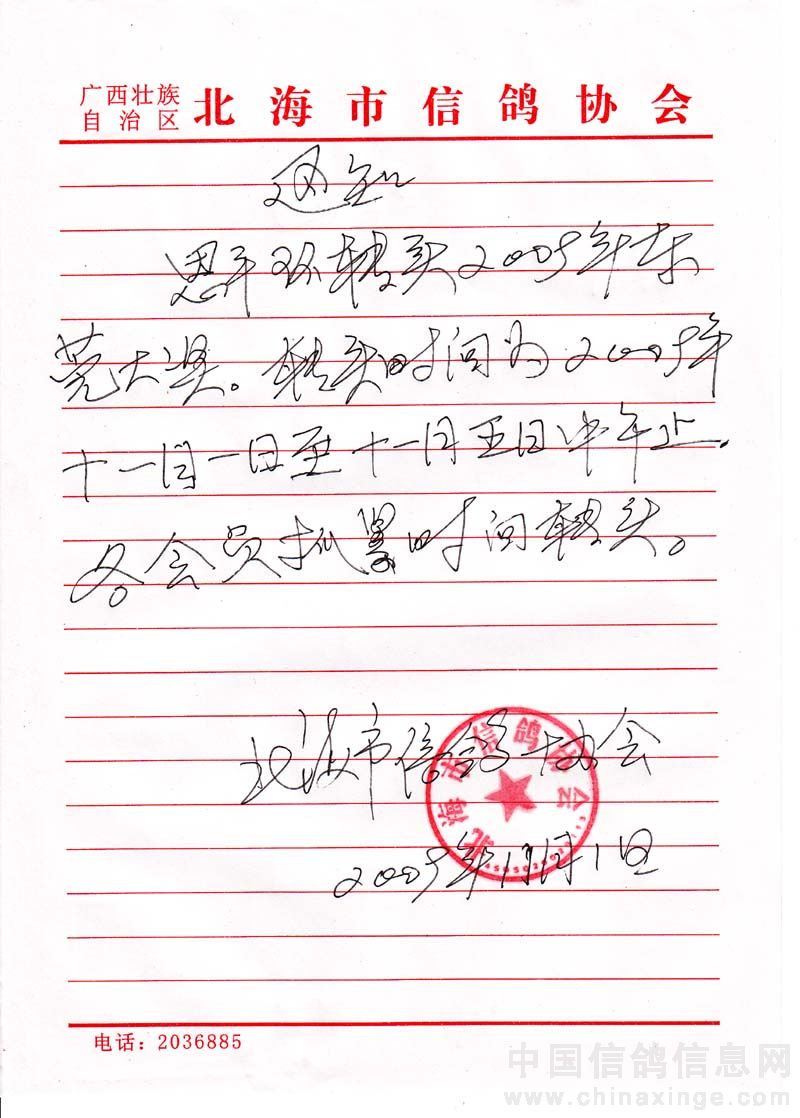 广西壮族
自治区 北海市信鸽协会
通知
恩平环转买2009年东
莞大奖。转买时间为2009年
十一月一日至十一月五日中午止.
各会员抓紧时间转买。
北海市信鸽协会
北海市信鸽协会
2009年11月1日
电话：2036885
中国信鸽信息网
www.chinaxinge.com